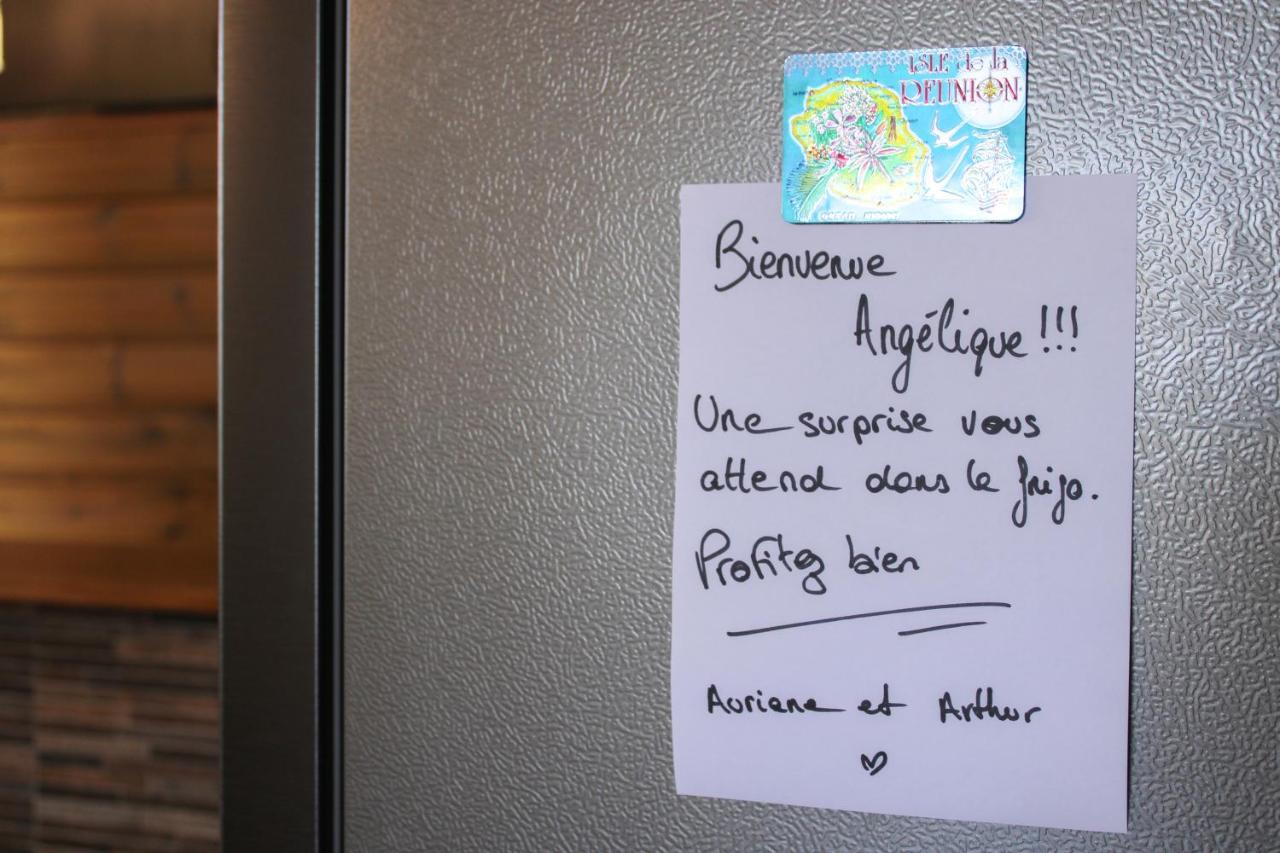 ISLE de la
REUNION
Bienvenue
Angélique !!!
Une surprise vous
attend dans le frigo.
Profitez bien
Auriane et Arthur